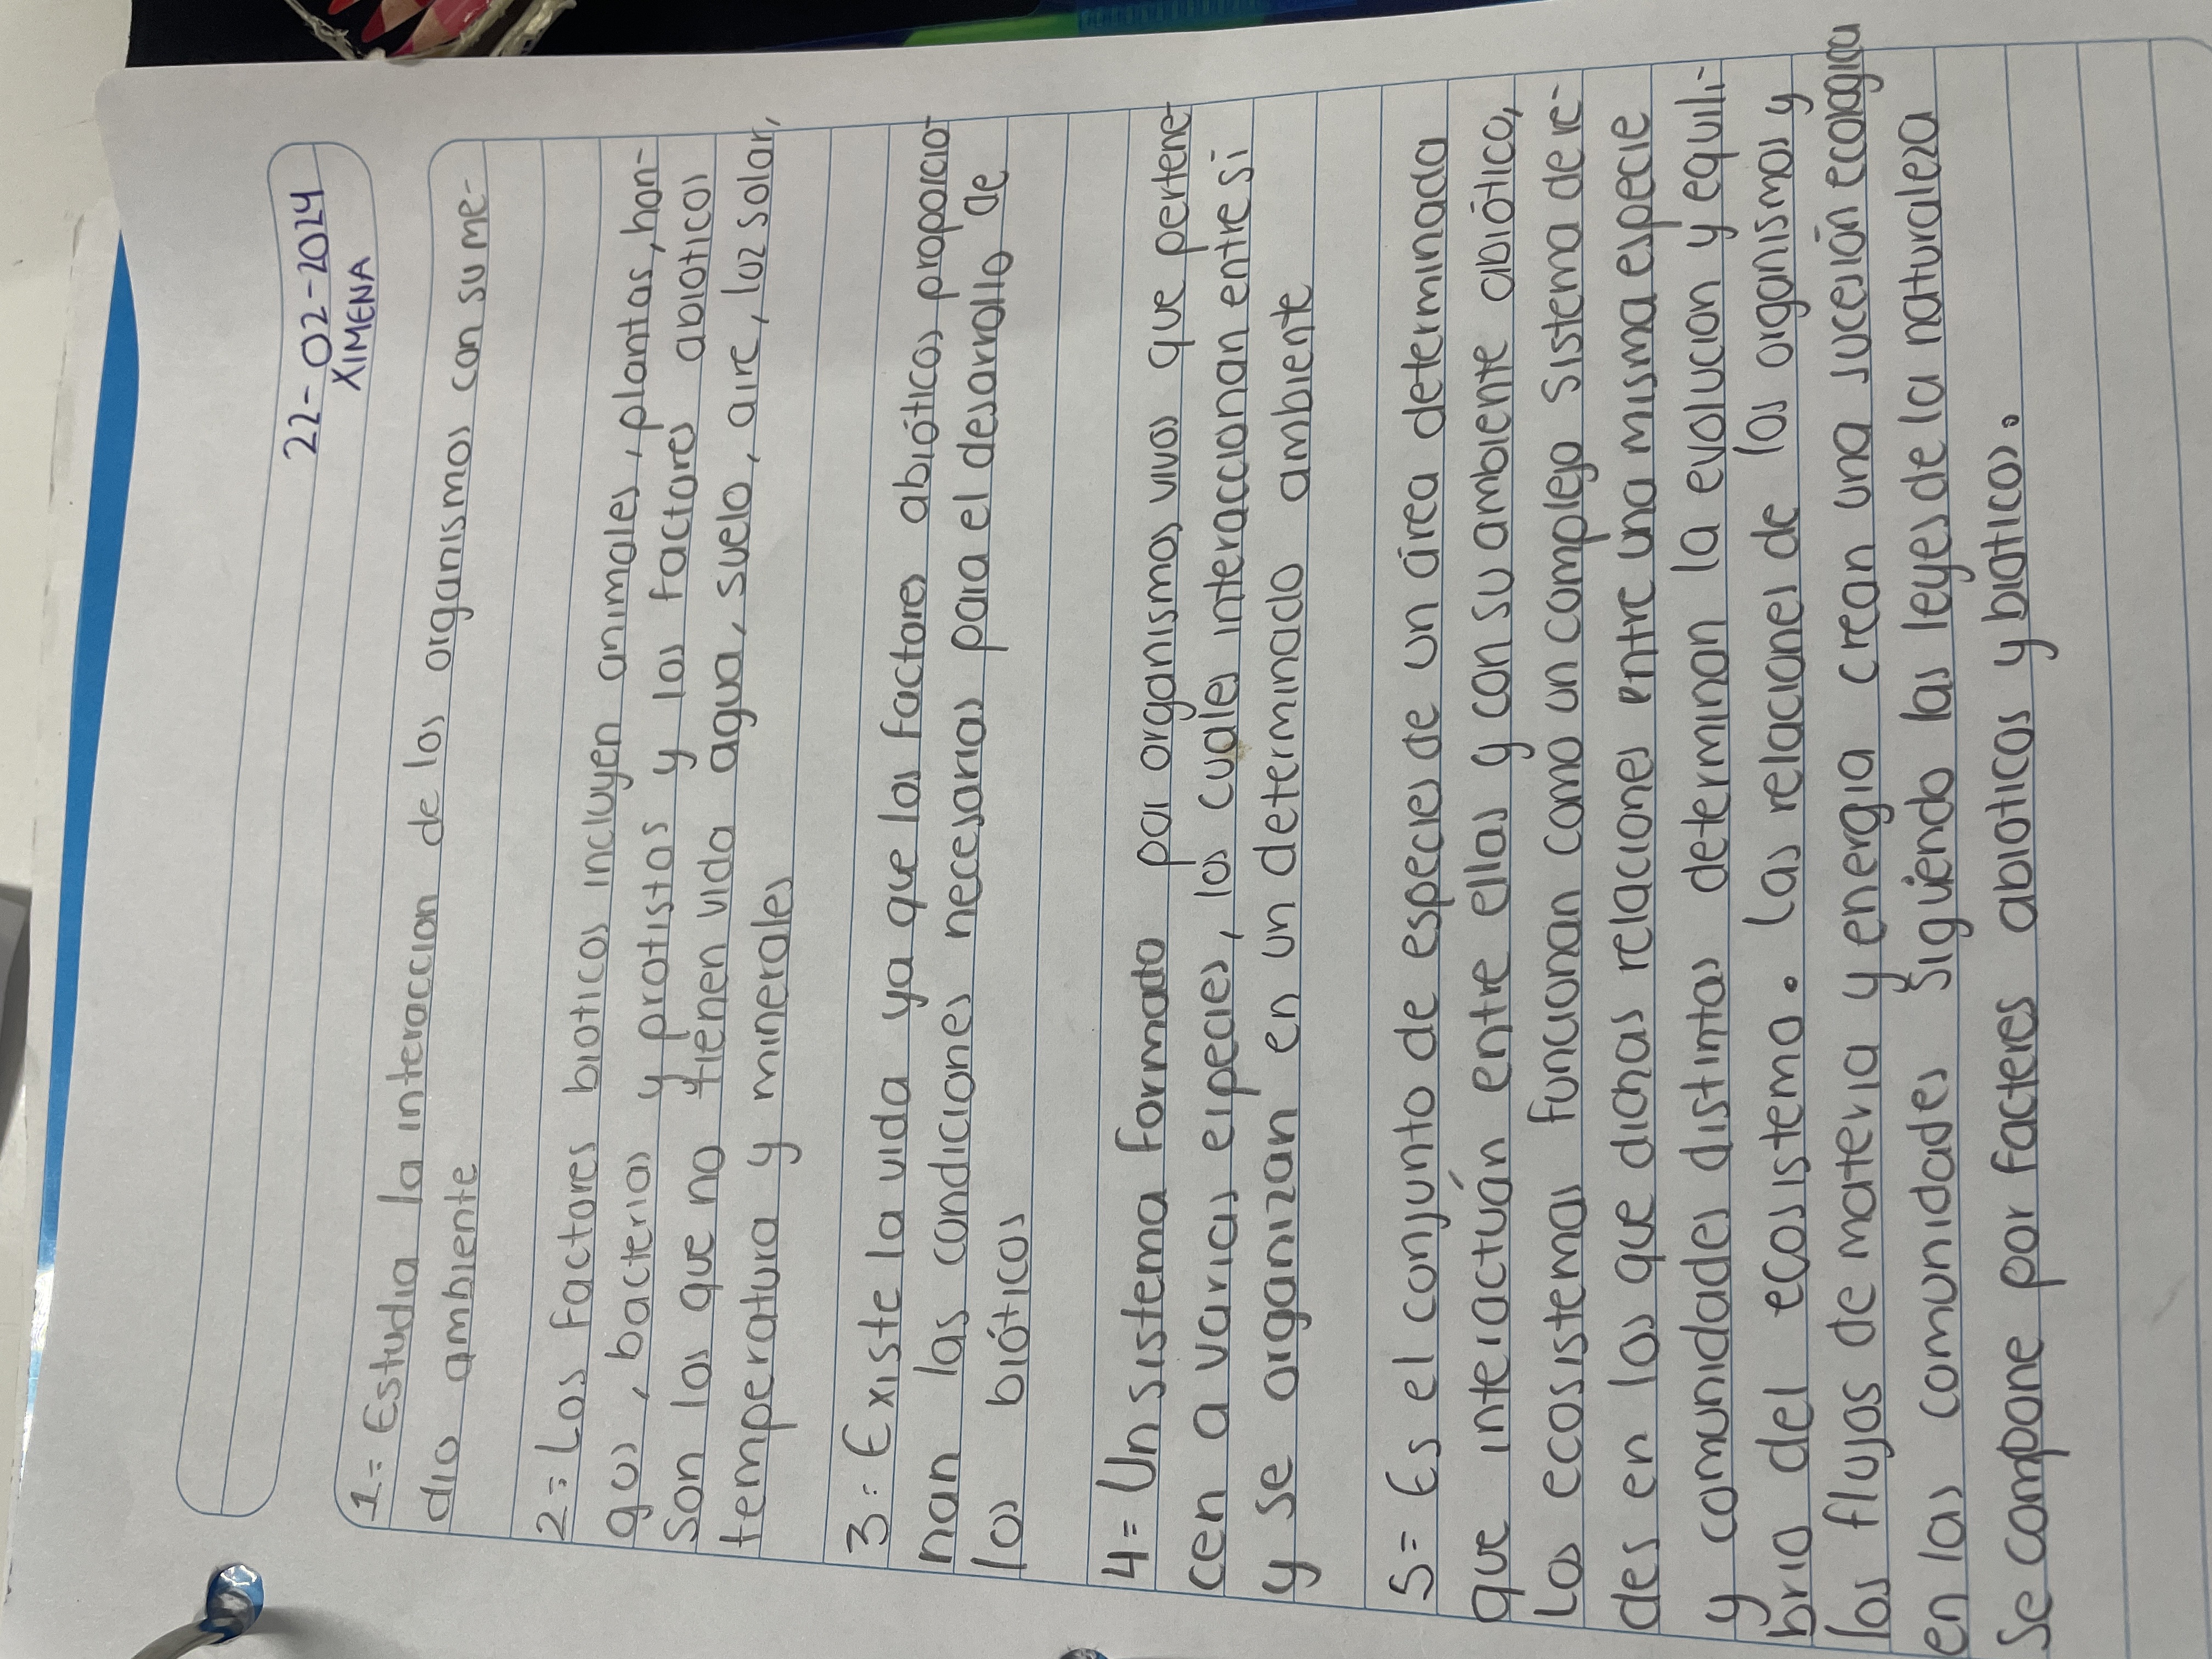 22-02-2024
XIMENA
1= Estudia la interaccion de los organismos con su me-
dio ambiente
2= Los factores bioticos incluyen animales, plantas, hon-
gos, bacterias y protistas y los factores abioticos
Son los que no tienen vida agua, suelo, aire, luz solar,
temperatura y minerales
3= Existe la vida ya que los factores abióticos proporcio-
nan las condiciones necesarias para el desarrollo de
los bióticos
4= Un sistema formado por organismos vivos que pertene-
cen a varias especies, los cuales interaccionan entre si
y se organizan en un determinado ambiente
5= Es el conjunto de especies de un área determinada
que interactuán entre ellas y con su ambiente abiótico,
Los ecosistemas funcionan como un complejo sistema de re-
des en los que dichas relaciones entre una misma especie
y comunidades distintas determinan la evolucion y equili-
brio del ecosistema. Las relaciones de los organismos y
los flujos de materia y energia crean una sucesión ecologica
en las comunidades siguiendo las leyes de la naturaleza
Se compone por facteres abioticos y bioticos.